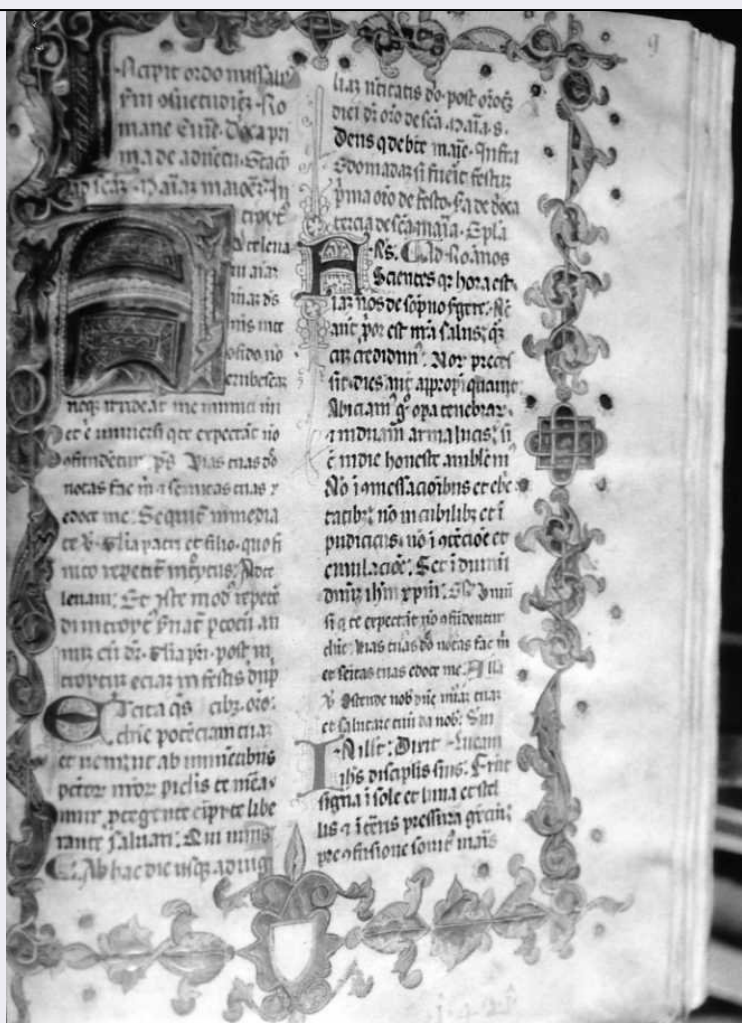 9
Incipit ordo missalis
Ro
mane Curie. Dñica pri
ma de adventu. Stacio
ad scaȝ Mariaȝ maioreȝ. In
troyt9
Ad te leva
vi aiaȝ
meaȝ ds
ms in te
ɔfido nõ
erubescaȝ
neqȝ irrideãt me inimici mi
et ẽ universi q te expectãt nõ
ɔfundẽtur. ps. Vias tuas dñe
notas fac m et semitas tuas
edoce me. Sequit inmedia
te v. Glia patri et filio. quo fi
nito repetit introytus. Ad te
levavi. Et iste mod9 repete
di introytũ
Glia pri. post in
troytuȝ eciaȝ in festis dup
Excita qs
dñe potẽciam tuaȝ
et veni ut ab iminẽtibus
pctor nror piclis te mea
mur ptegente eripi te libe
rante salvari. Qui vivis
Ab hac die usqȝ ad vigi
liaȝ nativitatis dñi. post oroȝ
diei dr oro de sca Maria. s.
Deus q de bte marie. Infra
Edomadaȝ si fuerit festuȝ
pma oro de festo. ẜa de dñica
tercia de sca maria. Epla
Ad Romanos
Scientes qȝ hora est
iaȝ nos de sopno surgere. Nũc
aut ppor est nra salus, qȝ
cuȝ credidim9. Nox preces
sit, dies aut appropiquavit
Abiciam9 g opa tenebraȝ
et induam arma lucis, si
c in die honeste ambulem9
Nõ ĩ ɔmessacioibus et ebrie
tatibȝ, nõ in cubilibȝ et ĩ
pudiciciis, nõ ĩ ɔtẽcioe et
emulacioe. Set ĩduimini
dnuȝ ihm xpm. Gr. Univer
si q te expectãt nõ ɔfundentur
dñe. Vias tuas dñe notas fac m
et semitas tuas edoce me. Alla
v. Ostende nob dñe miaȝ tuaȝ
et salutare tuũ da nob. Sm
Lucam
In illo t. Dixit
ihs disciplis suis. Erũt
signa ĩ sole et luna et stel
lis et ĩ terris pressura gẽciũ
pre ɔfusione sonit9 maris